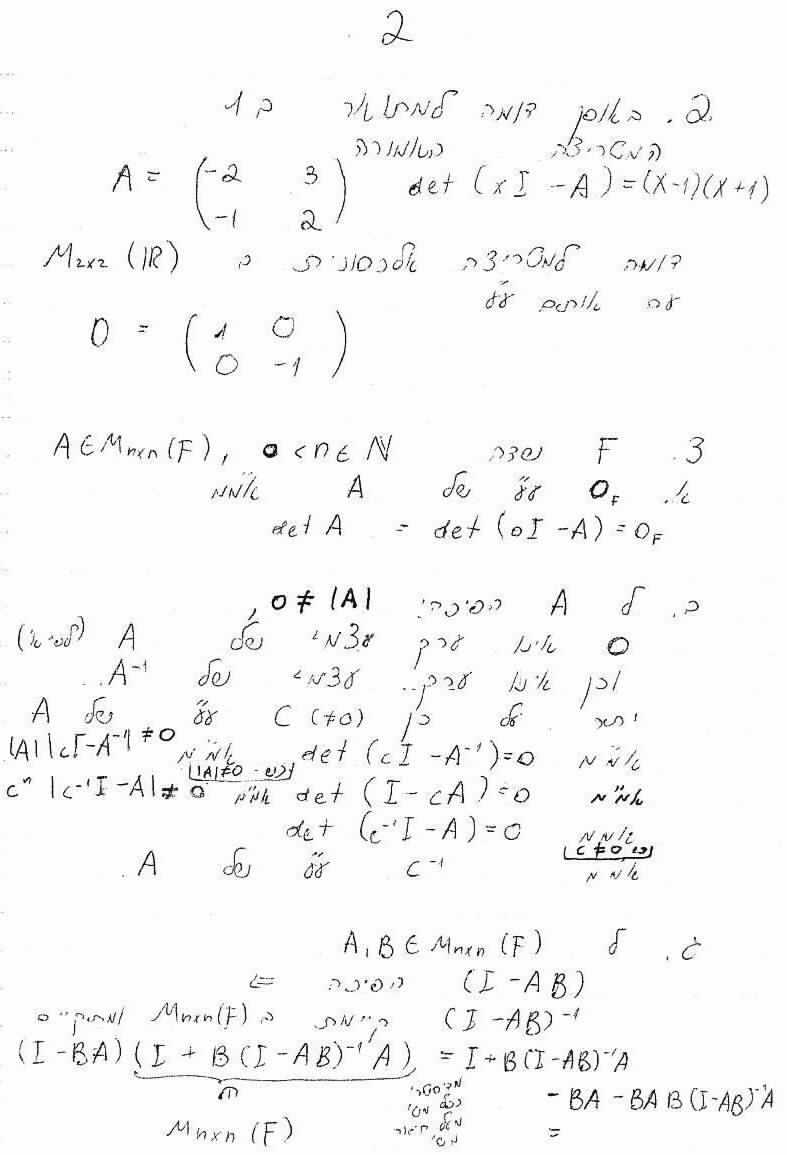 2
2. באופן דומה למתואר ב 1
המטריצה האמורה
A = (-2 3 / -1 2) det (xI - A) = (x-1)(x+1)
דומה למטריצה אלכסונית ב M2x2 (IR)
עם אותם ע"ע
D = (1 0 / 0 -1)
3. F שדה A ∈ Mnxn (F), 0 < n ∈ N
א. 0F ע"ע של A אמ"מ
det A = det (0I - A) = 0F
ב. ל A הפיכה: 0 ≠ |A|,
0 אינו ערך עצמי של A (לפי א')
ולכן אינו ערך עצמי של A⁻¹.
יתר על כן C (≠0) ע"ע של A
אמ"מ det (cI - A⁻¹) = 0 אמ"מ |A| |cI - A⁻¹| ≠ 0
(|A| ≠ 0)
אמ"מ det (I - cA) = 0 אמ"מ cⁿ |c⁻¹I - A| ≠ 0
אמ"מ det (c⁻¹I - A) = 0
(c ≠ 0)
אמ"מ c⁻¹ ע"ע של A.
ג. ל A, B ∈ Mnxn (F)
(I - AB) הפיכה ⇐
(I - AB)⁻¹ קיימת ב Mnxn (F) ומתקיים
(I - BA) (I + B (I - AB)⁻¹ A) = I + B (I - AB)⁻¹ A
- BA - BAB (I - AB)⁻¹ A
Mnxn (F)
=